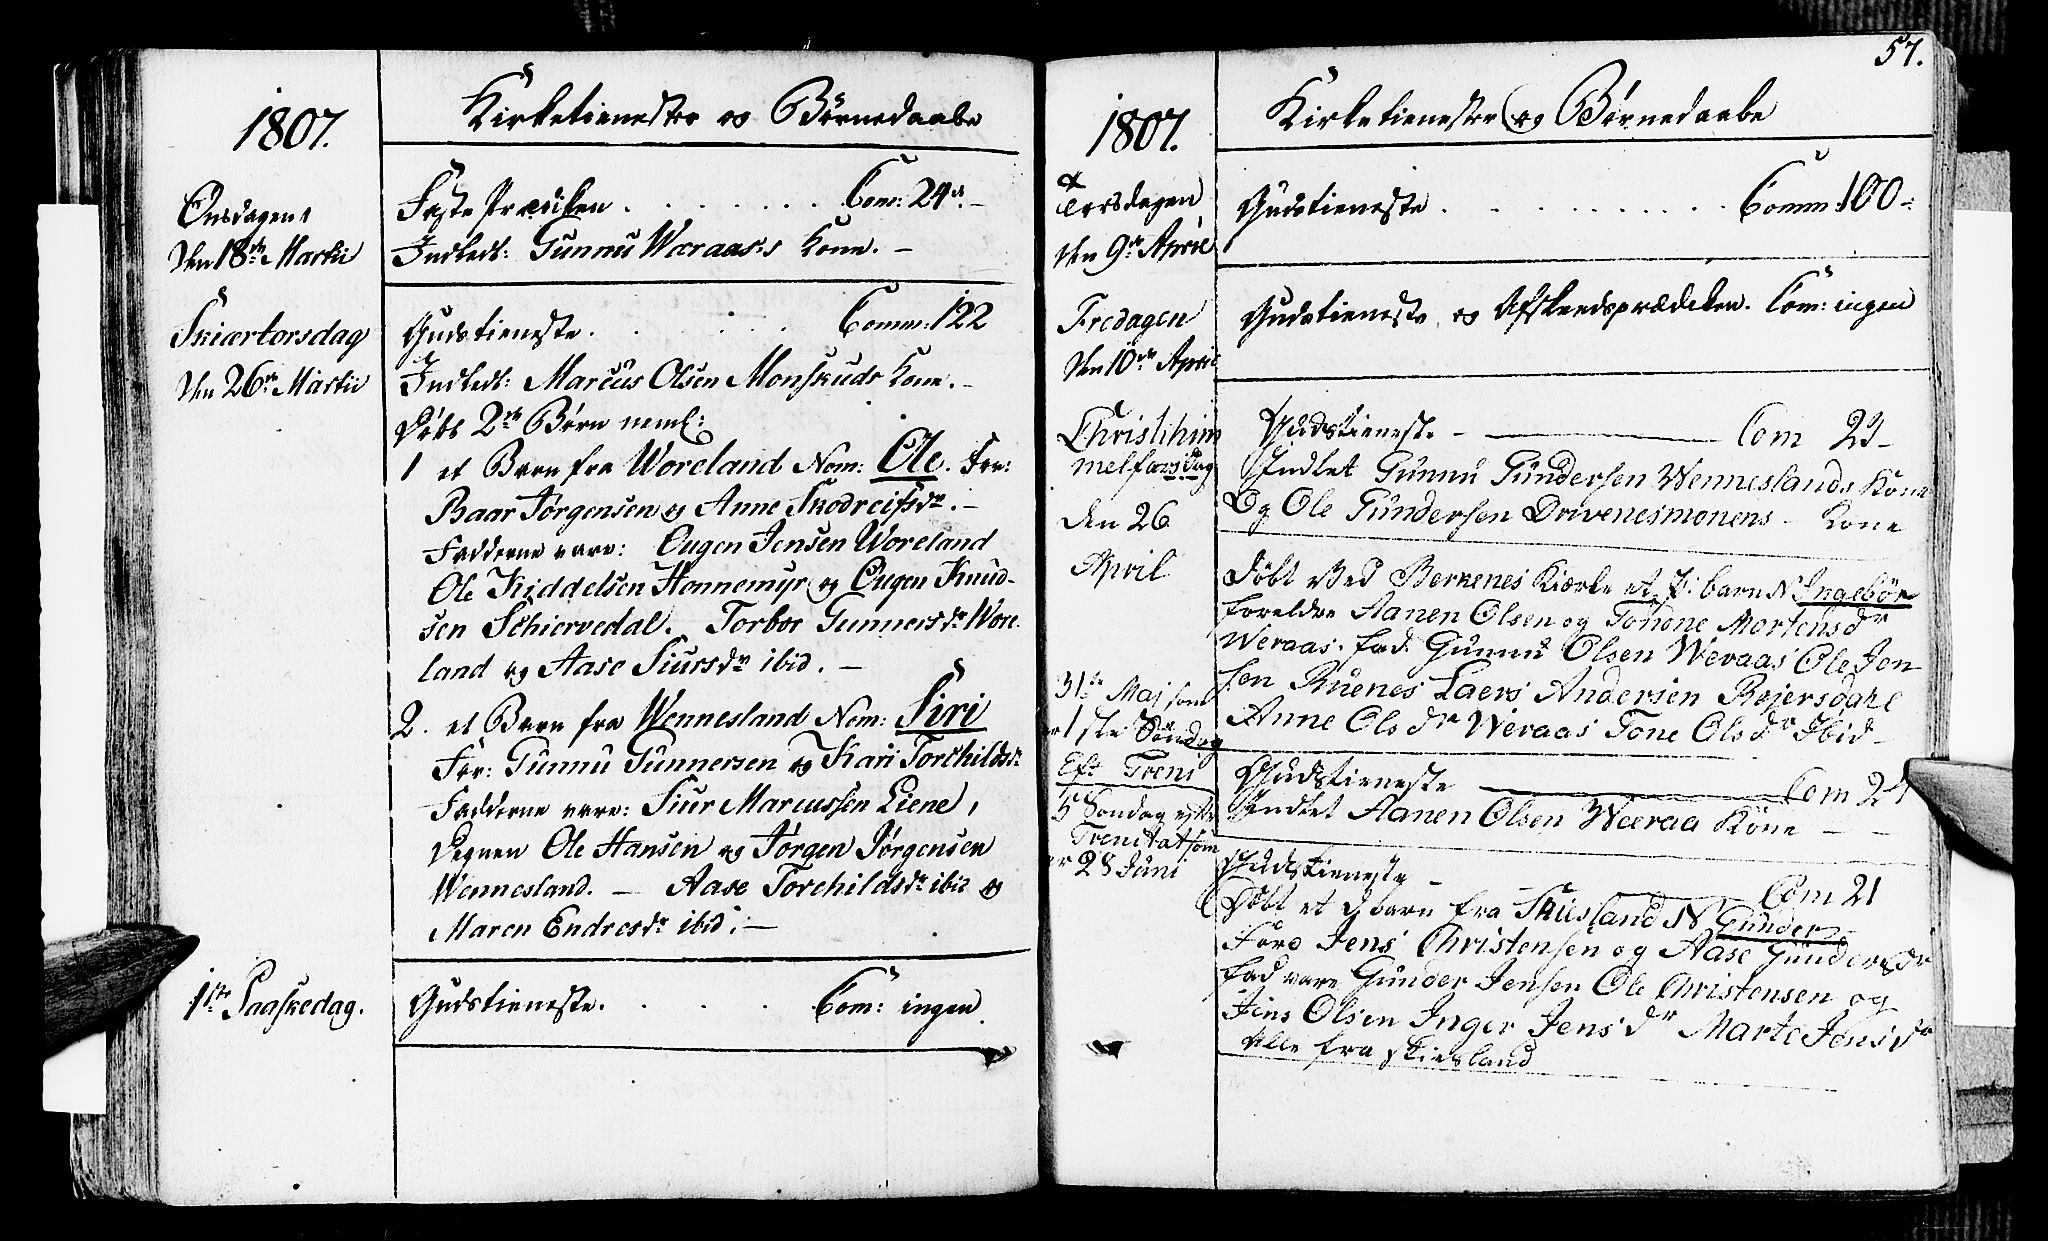 1807.
Kirketienester og Børnedaabe
Onsdagen
den 18de Martii
Faste Prædiken . . . . . . . Com: 24de. –
Indledt: Gunnu Wæraas's Kone. –
Skiærtorsdag
den 26de Martii
Gudstieneste. . . . . Comm: 122
Indledt: Marcus Olsen Monskuds Kone. –
Døbt 2de Børn neml:
1 et Barn fra Woreland Nom: Ole. For:
Baar Jørgensen og Anne Skodreisdr. –
Fadderne vare: Ougen Jensen Woreland
Ole Kiddelsen Honnemyr og Ougen Knud-
sen Schiervedal. Torbor Gunnersdr Wore-
land og Aase Siursdr ibid. –
2. et Barn fra Wennesland Nom: Siri
For: Gunnu Gunnersen og Kari Torchildsdr
Fadderne vare: Siur Marcussen Liene,
Degnen Ole Hansen og Jørgen Jørgensen
Wennesland. – Aase Torchildsdr ibid og
Maren Endresdr ibid. –
1ste Paaskedag.
Gudstieneste. . . . . Com: ingen.
57.
1807.
Kirketienester og Børnedaabe
Torsdagen
den 9de April
Gudstieneste . . . . . . . . . . Comm: 100 –
Fredagen
den 10de April
Gudstieneste og Afskeedsprædiken. Com: ingen
Christihim
melfarsdag
den 26
April
Gudstieneste – Com 23 –
Indlet Gunnu Gundersen Wenneslands Kone
Og Ole Gundersen Drivenesmonens – Kone
Døbt ved Bernenes Kiærke et barn N Ingebör
foreldre Aanen Olsen og Tonone Mortensdr
Weraas. fad. Gunnu Olsen Weraas Ole Jen
sen Ruenes Laers Andersen Røjersdahl
Anne Olsdr Weraas Tone Olsdr Ibid –
31te Maj som
er 1ste Søndag
Eft Treni
Gudstieneste – Com 24
Indlet Aanen Olsen Wæraa Köne – –
5 Søndag efter
Trenitat som
er 28 Juni
Gudstieneste – Com 21
Døbt et d barn fra Skiesland N Gunder
Fore Jens Christensen og Aase Gündersdr
fad vare Gunder Jensen Ole Christensen og
Jens Olsen Inger Jensdr Marte Jensdr
Alle fra Skiesland